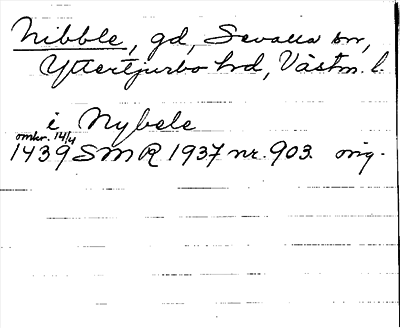 Nibble, gd, Sevalla sn,
Yttertjurbo hd, Västm. l.
i Nybele
omkr. 14/4
1439 SMR 1937 nr. 903. orig.